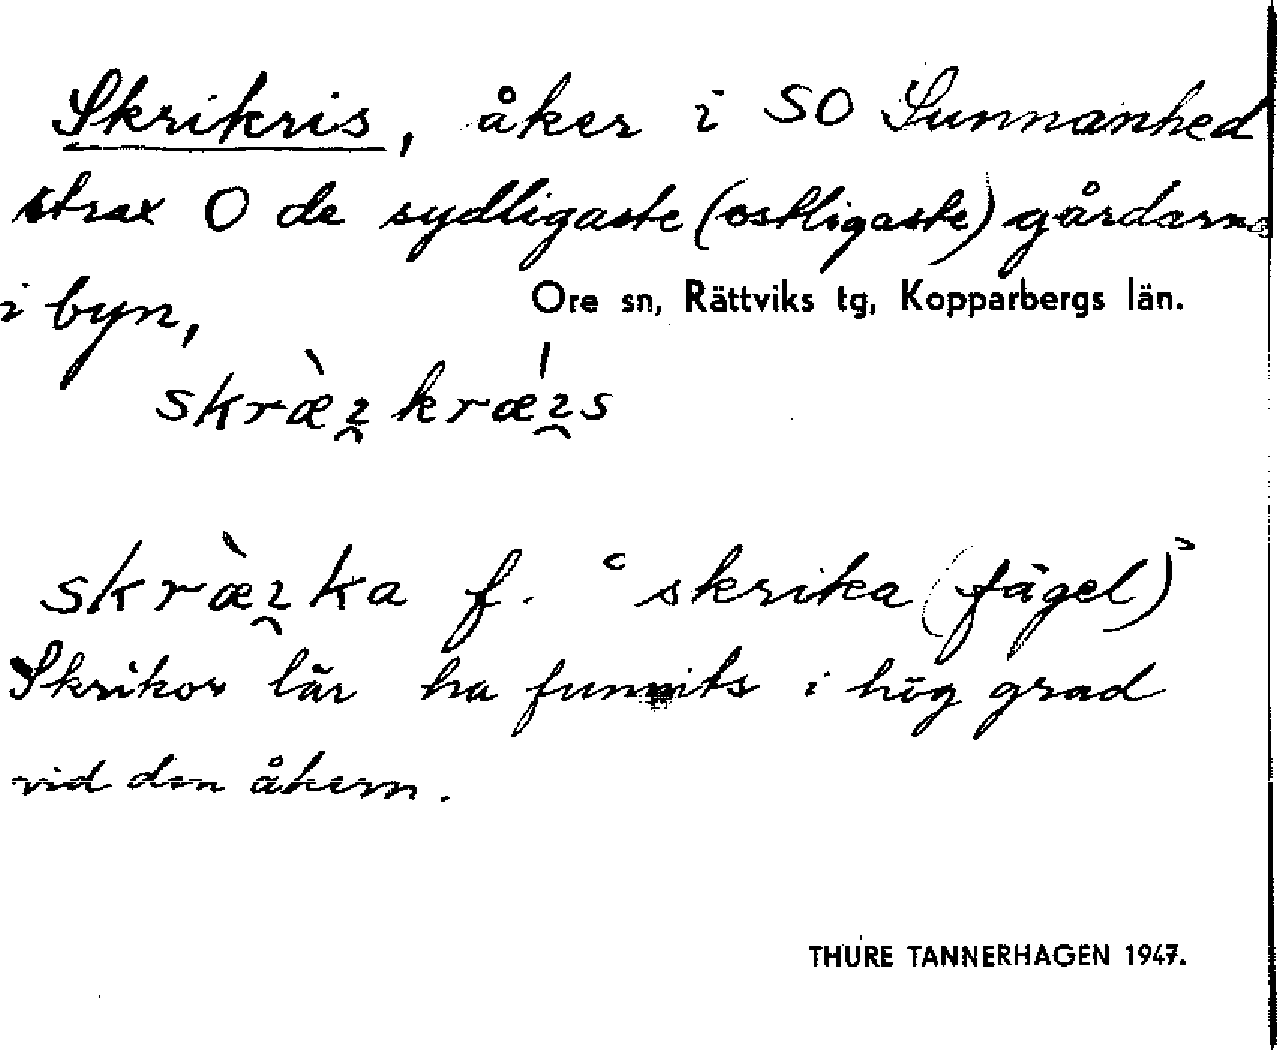 Skrikris, åker i SO Sunnanhed
strax O de sydligaste (ostligaste) gårdarna
i byn,
Ore sn, Rättviks tg, Kopparbergs län.
skræ̀ı̯krǽı̯s
skræ̀ı̯ka f. ‘skrika (fågel)’
Skrikor lär ha funnits i hög grad
vid den åkern.
THURE TANNERHAGEN 1947.